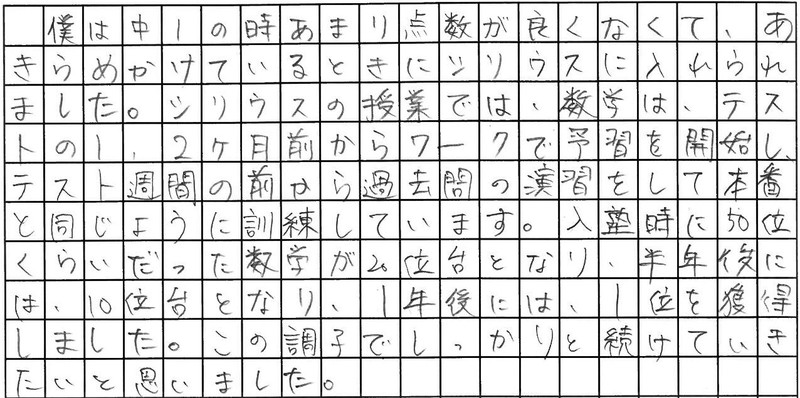 僕は中1の時あまり点数が良くなくて、あ
きらめかけているときにシリウスに入れられ
ました。シリウスの授業では、数学は、テス
トの1、2ケ月前からワークで予習を開始し、
テスト週間の前から過去問の演習をして本番
と同じように訓練しています。入塾時に50位
くらいだった数学が20位台となり、半年後に
は、10位台となり、1年後には、1位を獲得
しました。この調子でしっかりと続けていき
たいと思いました。